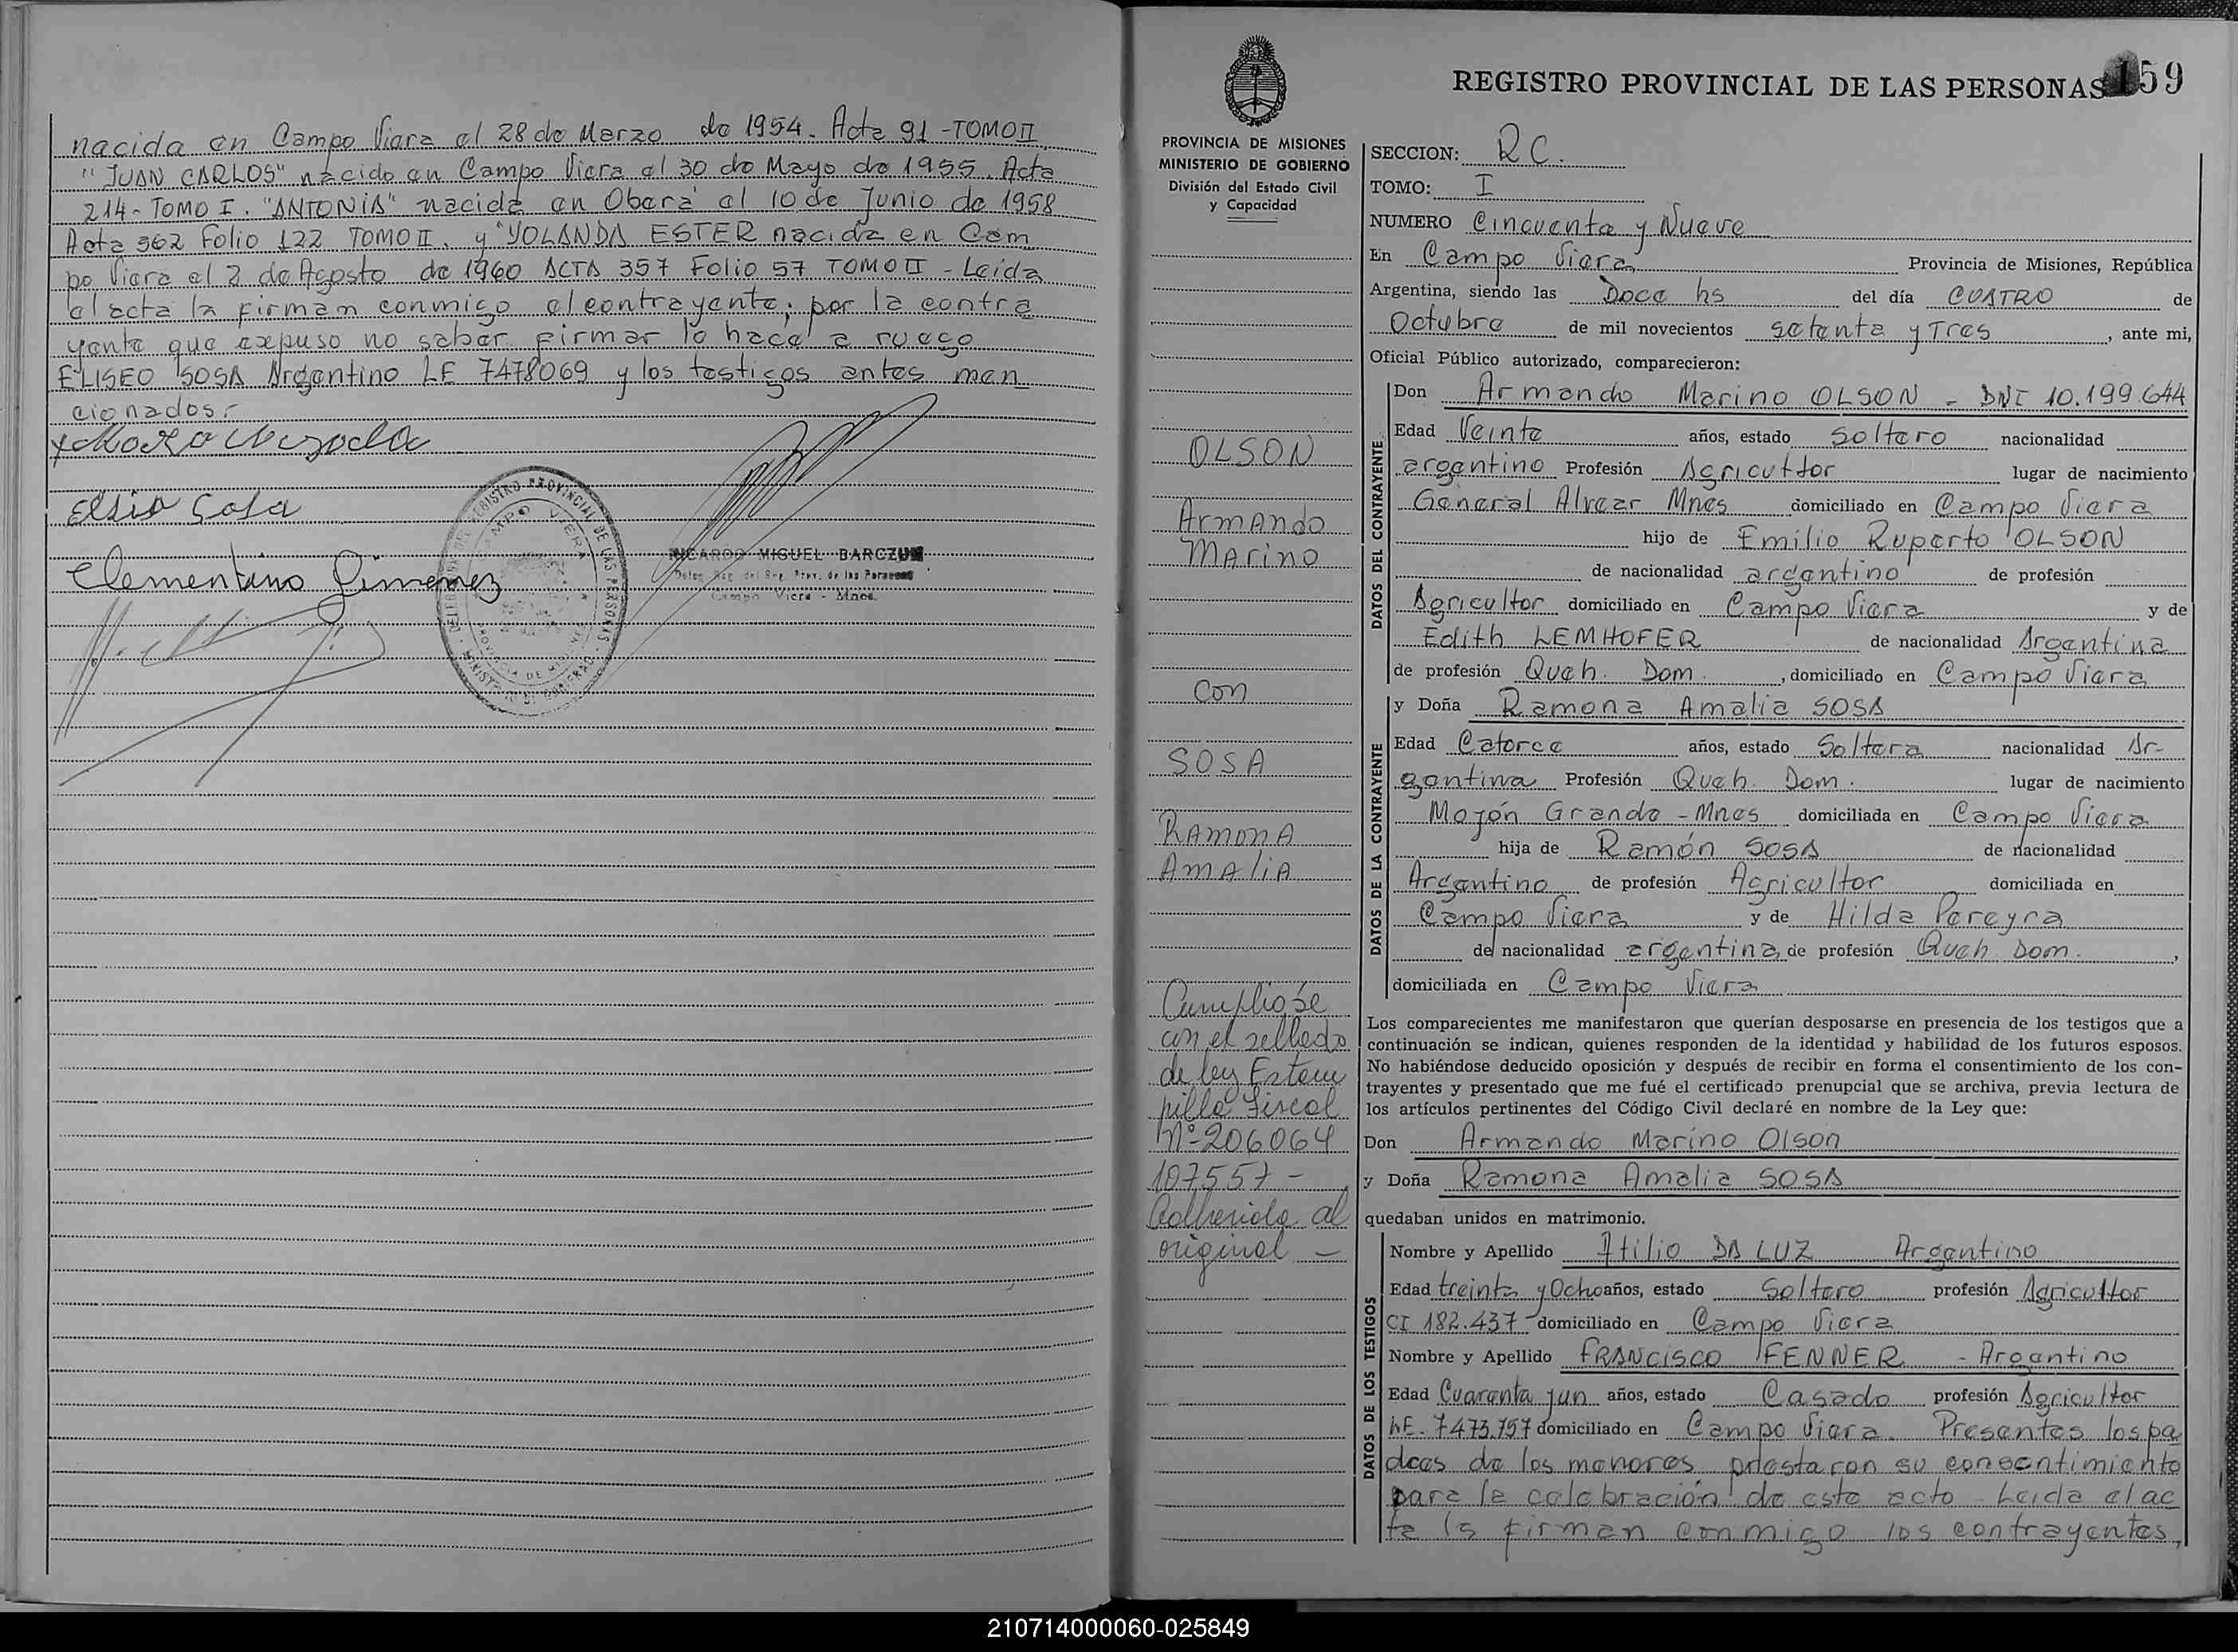 nacida en Campo Viera el 28 de Marzo de 1954. Acta 91 - TOMO II
"JUAN CARLOS" nacido en Campo Viera el 30 de Mayo de 1955. Acta
214 - TOMO I. "ANTONIA" nacida en Oberá el 10 de Junio de 1958
Acta 362 Folio 122 TOMO II. y "YOLANDA ESTER nacida en Cam
po Viera el 2 de Agosto de 1960 ACTA 357 Folio 57 TOMO II - Leida
el acta la firman conmigo el contrayente; por la contra
yente que expuso no saber firmar lo hace a ruego
ELISEO SOSA Argentino LE 7478069 y los testigos antes men
cionados.-
Clementino Gimenez
DELEGACION DEL REGISTRO PROVINCIAL DE LAS PERSONAS
CAMPO VIERA
PROVINCIA DE MISIONES
MINISTERIO DE GOBIERNO
RICARDO MIGUEL BARCZUK
Campo Viera - Mnes.
REGISTRO PROVINCIAL DE LAS PERSONAS 159
PROVINCIA DE MISIONES
MINISTERIO DE GOBIERNO
División del Estado Civil
y Capacidad
OLSON
Armando
Marino
con
SOSA
RAMONA
AMALIA
Cumplióse
con el sellado
de ley Estam
pilla Fiscal
Nº 206064
107557 -
Adherida al
original -
SECCION: RC.
TOMO: I
NUMERO Cincuenta y Nueve
En Campo Viera Provincia de Misiones, República
Argentina, siendo las Doce hs del día CUATRO de
Octubre de mil novecientos setenta y Tres, ante mi,
Oficial Público autorizado, comparecieron:
DATOS DEL CONTRAYENTE
Don Armando Marino OLSON - DNI 10.199.644
Edad Veinte años, estado Soltero nacionalidad
argentino Profesión Agricultor lugar de nacimiento
General Alvear Mnes domiciliado en Campo Viera
hijo de Emilio Ruperto OLSON
de nacionalidad argentino de profesión
Agricultor domiciliado en Campo Viera y de
Edith LEMHOFER de nacionalidad Argentina
de profesión Queh. Dom., domiciliado en Campo Viera
DATOS DE LA CONTRAYENTE
y Doña Ramona Amalia SOSA
Edad Catorce años, estado Soltera nacionalidad Ar-
gentina Profesión Queh. Dom. lugar de nacimiento
Mojón Grande - Mnes domiciliada en Campo Viera
hija de Ramón SOSA de nacionalidad
Argentino de profesión Agricultor domiciliada en
Campo Viera y de Hilda Pereyra
de nacionalidad argentina, de profesión Queh. Dom.,
domiciliada en Campo Viera
Los comparecientes me manifestaron que querían desposarse en presencia de los testigos que a
continuación se indican, quienes responden de la identidad y habilidad de los futuros esposos.
No habiéndose deducido oposición y después de recibir en forma el consentimiento de los con-
trayentes y presentado que me fué el certificado prenupcial que se archiva, previa lectura de
los artículos pertinentes del Código Civil declaré en nombre de la Ley que:
Don Armando Marino Olson
y Doña Ramona Amalia SOSA
quedaban unidos en matrimonio.
DATOS DE LOS TESTIGOS
Nombre y Apellido Atilio DA LUZ Argentino
Edad treinta y Ocho años, estado Soltero profesión Agricultor
CI 182.437 - domiciliado en Campo Viera
Nombre y Apellido FRANCISCO FENNER - Argentino
Edad Cuarenta y un años, estado Casado profesión Agricultor
LE. 7473.757 domiciliado en Campo Viera. Presentes los pa
dres de los menores prestaron su consentimiento
para la celebración de este acto - Leida el ac
ta la firman conmigo los contrayentes,
210714000060-025849